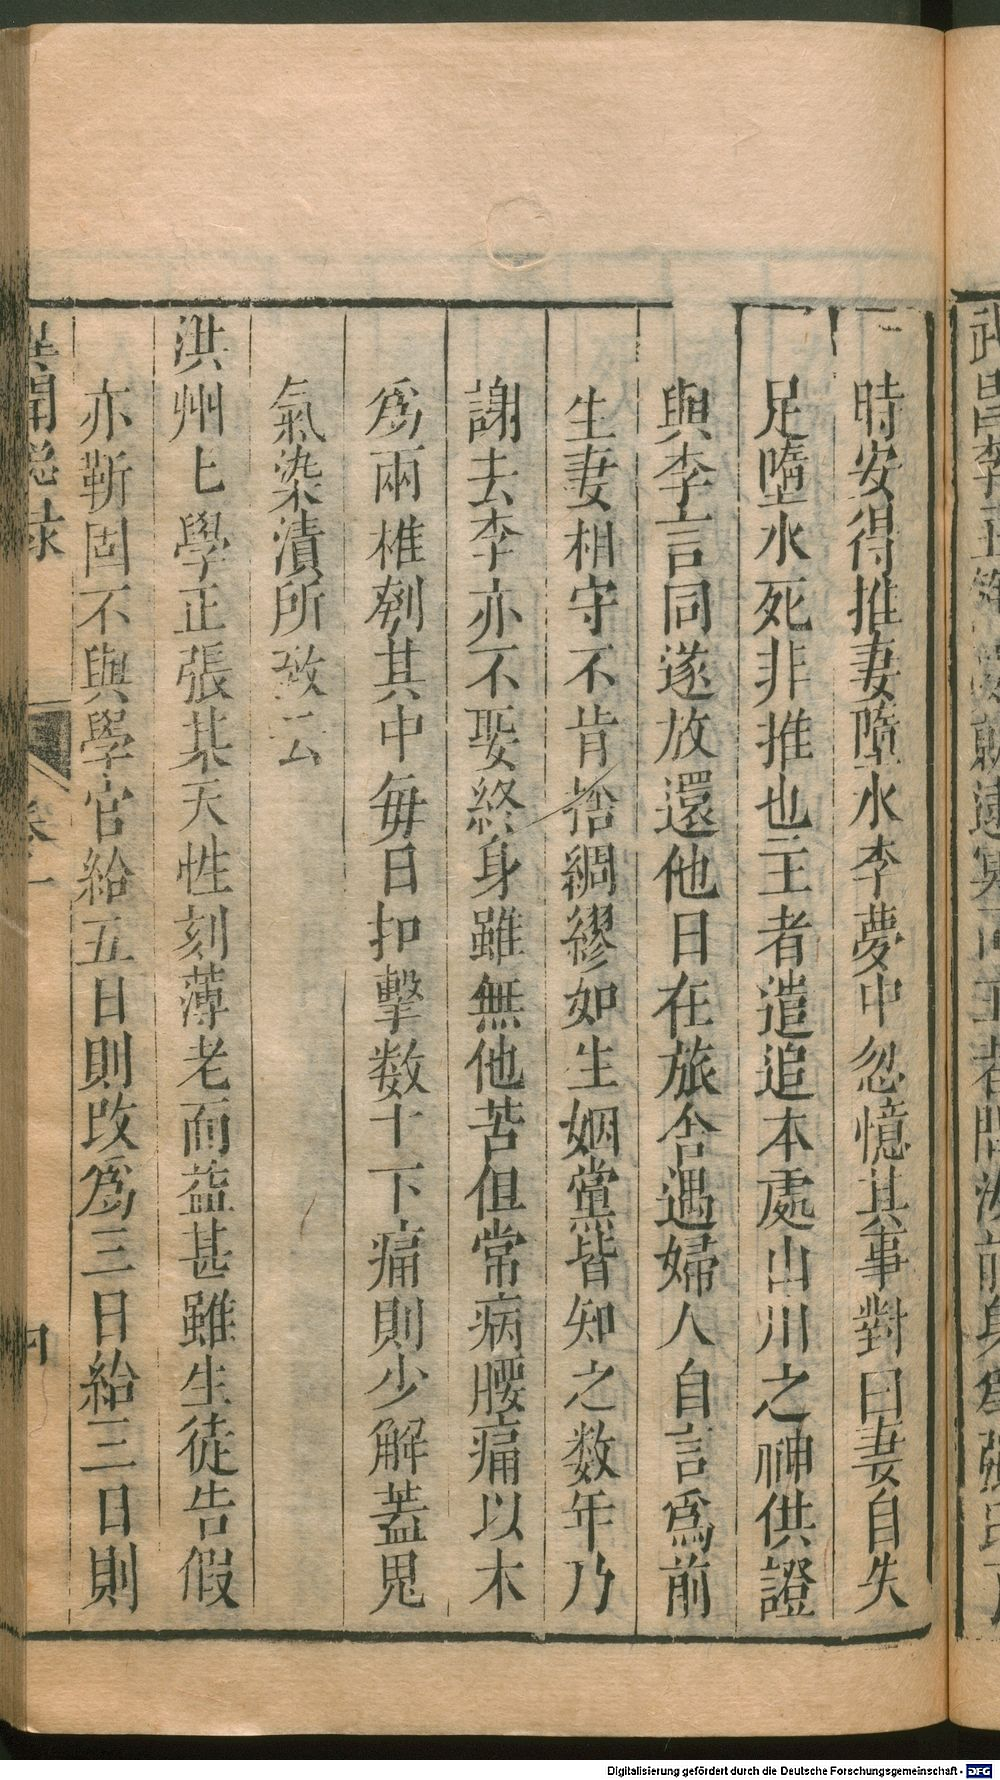 時安得推妻墮水李夢中忽憶其事對曰妻自失
足墮水死非推也王者遣追本處山川之神供證
與李言同遂放還他日在旅舍遇婦人自言爲前
生妻相守不肯捨綢繆如生姻黨皆知之数年乃
謝去李亦不娶終身雖無他苦但常病腰痛以木
爲兩椎剜其中每日扣擊数十下痛則少解蓋鬼
氣染漬所致云
洪州七學正張某天性刻薄老而益甚雖生徒告假
亦靳固不與學官給五日則改爲三日給三日則
卷一
Digitalisierung gefördert durch die Deutsche Forschungsgemeinschaft - DFG